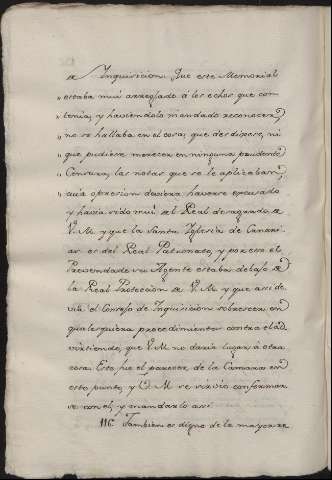 a Inquisicion. Que este Memorial
" estaba mui arreglado à los echos que con-
" tenia, y haviendolo mandado reconocer
" no se hallaba en el cosa que desdixere, ni
" que pudiere merecer en ninguna prudente
" Censura, las notas que se le aplicaban
" cuia opresion deviera haverse excusado
y havia sido mui del Real desagrado de
V. M. y que la Santa Iglesia de Canari-
as es del Real Patronato, y por esso el
Prevendado su Agente estaba debajo de
la Real Proteccion de V. M. y que assi de-
via el Consejo de Inquisicion sobreseer en
qualesquiera procedimientos contra el ad-
virtiendo, que V. M. no daria lugar à otra
cosa. Este fue el parecer de la Camara en
este punto, y V. M. se sirvió conformar-
se con el, y mandarlo assi
116 Tambien es digno de la mayor re-